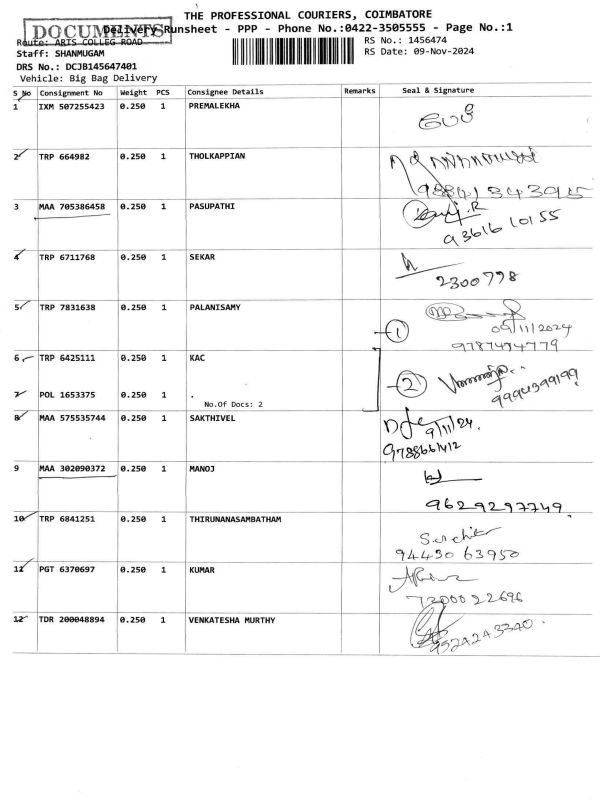 THE PROFESSIONAL COURIERS, COIMBATORE
DOCUMENTS
Delivery Runsheet - PPP - Phone No.:0422-3505555 - Page No.:1
Route: ARTS COLLEG ROAD
RS No.: 1456474
Staff: SHANMUGAM
RS Date: 09-Nov-2024
DRS No.: DCJB145647401
Vehicle: Big Bag Delivery
S No Consignment No Weight PCS Consignee Details Remarks Seal & Signature
1 IXM 507255423 0.250 1 PREMALEKHA
2 TRP 664982 0.250 1 THOLKAPPIAN
3 MAA 705386458 0.250 1 PASUPATHI
93616 10155
4 TRP 6711768 0.250 1 SEKAR
2300798
5 TRP 7831638 0.250 1 PALANISAMY
1
09/11/2024
6 TRP 6425111 0.250 1 KAC
2
9994399199
7 POL 1653375 0.250 1 .
No.Of Docs: 2
8 MAA 575535744 0.250 1 SAKTHIVEL
9/11/24.
9 MAA 302090372 0.250 1 MANOJ
9629297749
10 TRP 6841251 0.250 1 THIRUNANASAMBATHAM
94430 63950
11 PGT 6370697 0.250 1 KUMAR
7200022696
12 TDR 200048894 0.250 1 VENKATESHA MURTHY
9524243340.